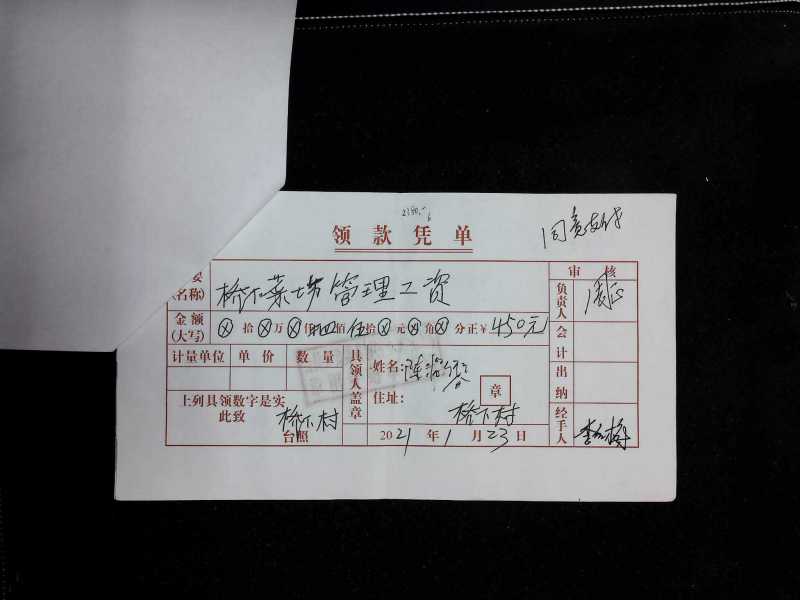 领款凭单
同意支付
要 桥下菜场管理工资 审核
(名称) 负责人
金额(大写) ⊗拾⊗万⊗仟肆佰伍拾⊗元⊗角⊗分正¥450元 会计
计量单位 单价 数量 具领人盖章 姓名:陈 出纳
上列具领数字是实 住址: 章
此致 桥下村 桥下村 经手人 李
台照 2021年1月23日